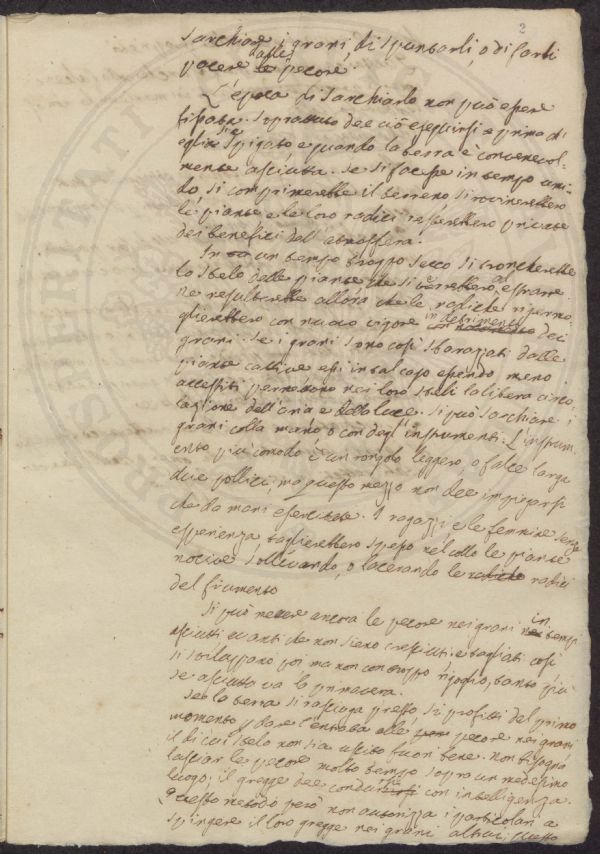 2
sarchiare i grani, di spuntarli, o di farli
pacere dalle pecore
L'epoca di sarchiarlo non può essere
fissata. Soprattutto dee ciò eseguirsi prima di
egli sia spigato e quando la terra è convenevol-
mente asciutta. Se si facesse in tempo umi-
do si comprimerebbe il terreno si rovinerebbero
le piante e le loro radici resterebbero private
dei benefici dell'atmosfera.
In un tempo troppo secco si troncherebbe
lo stelo delle piante che si verrebbero ad estrarre
ne resulterebbe allora che le radiche ripermo
glierebbero con nuovo vigore in detrimento dei
grani. Se i grani sono così sbarazzati dalle
piante cattive essi in tal caso essendo meno
accestiti permettono nei loro steli la libera circo
lazione dell'aria e della luce. Si può sarchiare i
grani colla mano, o con degl'instrumenti. L'instrum-
ento più comodo è un roncolo leggero, o falce larga
due pollici, ma questo mezzo non dee impiegarsi
che da mani esercitate. I ragazzi, e le femmine senza
esperienza taglierebbero spesso nel collo le piante
nocive sollevando, o lacerando le radici
del frumento
Si può mettere ancora le pecore nei grani in tempi
asciutti avanti che non sieno cresciuti, e tagliati così
si sviluppano poi ma non con troppo rigoglio, tanto più
se asciutta va la primavera.
Se la terra si rasciuga presso, si profitti del primo
momento per dare l'entrata alle pecore nei grani
il di cui stelo non sia uscito fuori bene. Non bisogna
lasciar le pecore molto tempo sopra un medesimo
luogo, il gregge dee condursi con intelligenza.
Questo metodo però non autorizza i particolari a
spingere il loro gregge nei grani altrui; questo